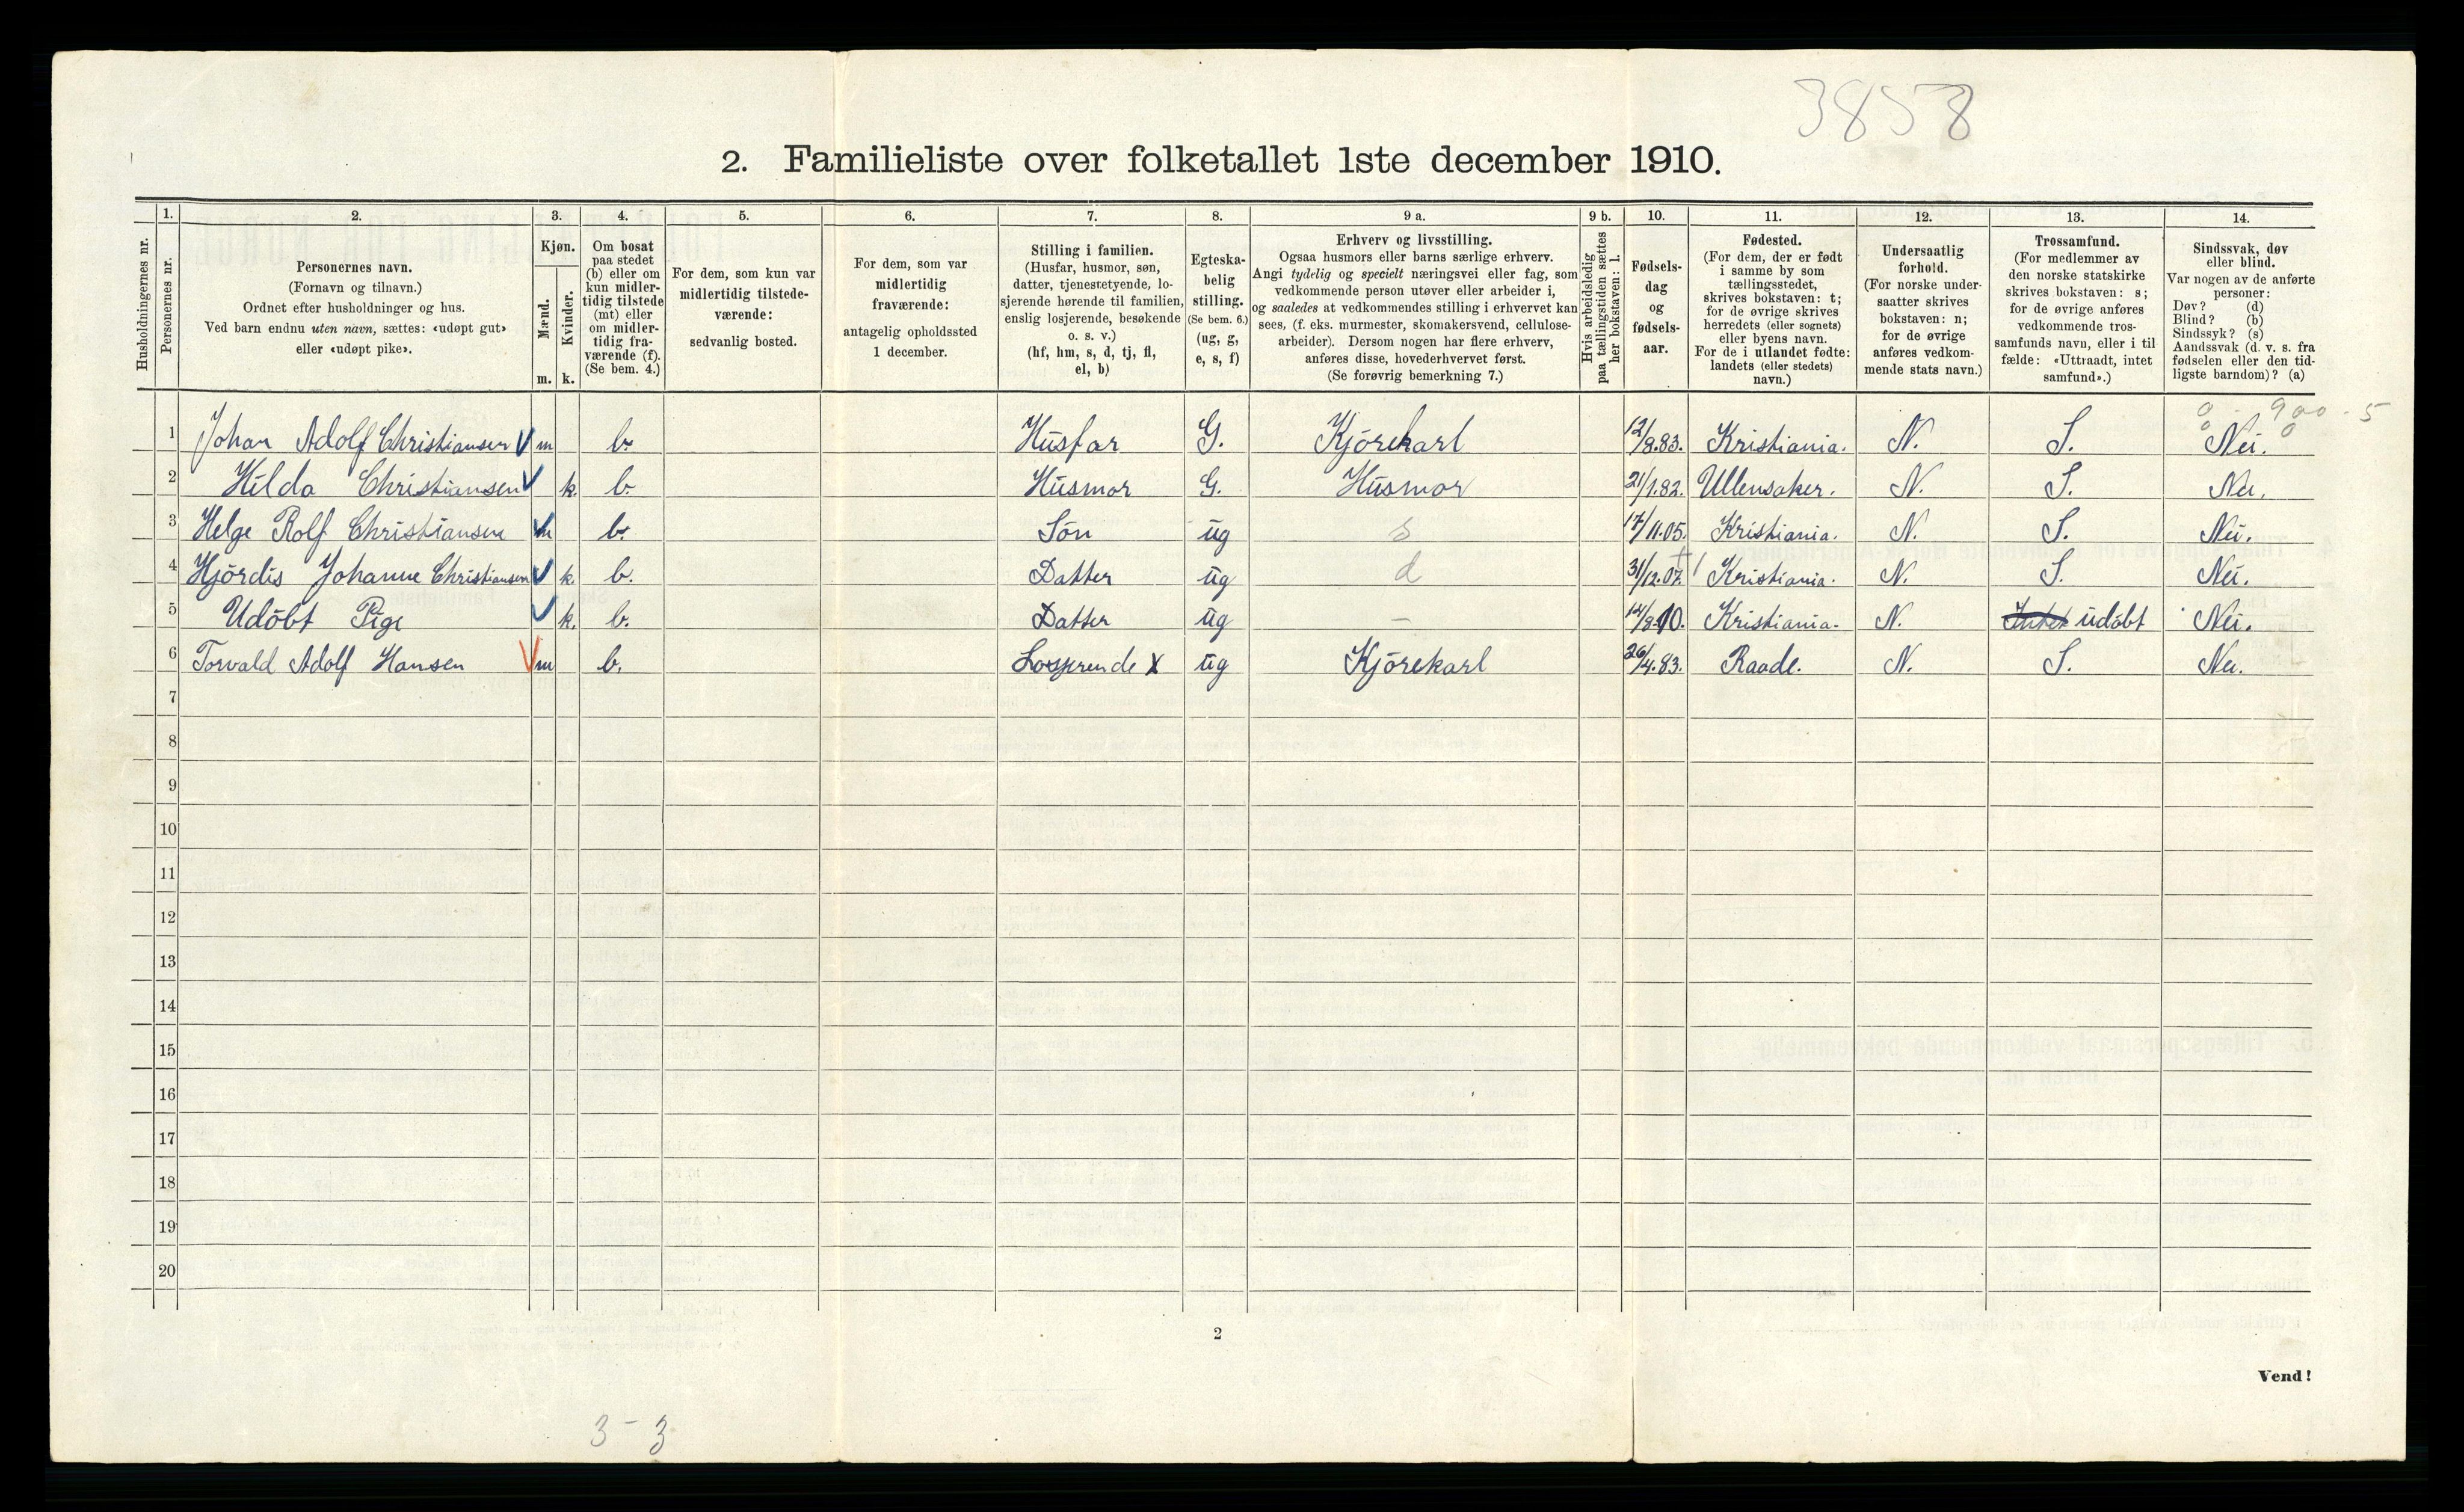 3858
2. Familieliste over folketallet 1ste december 1910.
Husholdningernes nr.
1.
Personernes nr.
2.
Personernes navn.
(Fornavn og tilnavn.)
Ordnet efter husholdninger og hus.
Ved barn endnu uten navn, sættes: «udøpt gut»
eller «udøpt pike».
3.
Kjøn.
Mænd.
m.
Kvinder.
k.
4.
Om bosat
paa stedet
(b) eller om
kun midler-
tidig tilstede
(mt) eller
om midler-
tidig fra-
værende (f).
(Se bem. 4.)
5.
For dem, som kun var
midlertidig tilstede-
værende:
sedvanlig bosted.
6.
For dem, som var
midlertidig
fraværende:
antagelig opholdssted
1 december.
7.
Stilling i familien.
(Husfar, husmor, søn,
datter, tjenestetyende, lo-
sjerende hørende til familien,
enslig losjerende, besøkende
o. s. v.)
(hf, hm, s, d, tj, fl,
el, b)
8.
Egteska-
belig
stilling.
(Se bem. 6.)
(ug, g,
e, s, f)
9 a.
Erhverv og livsstilling.
Ogsaa husmors eller barns særlige erhverv.
Angi tydelig og specielt næringsvei eller fag, som
vedkommende person utøver eller arbeider i,
og saaledes at vedkommendes stilling i erhvervet kan
sees, (f. eks. murmester, skomakersvend, cellulose-
arbeider). Dersom nogen har flere erhverv,
anføres disse, hovederhvervet først.
(Se forøvrig bemerkning 7.)
9 b.
Hvis arbeidsledig
paa tællingstiden sættes
her bokstaven: l.
10.
Fødsels-
dag
og
fødsels-
aar.
11.
Fødested.
(For dem, der er født
i samme by som
tællingsstedet,
skrives bokstaven: t;
for de øvrige skrives
herredets (eller sognets)
eller byens navn.
For de i utlandet fødte:
landets (eller stedets)
navn.)
12.
Undersaatlig
forhold.
(For norske under-
saatter skrives
bokstaven: n;
for de øvrige
anføres vedkom-
mende stats navn.)
13.
Trossamfund.
(For medlemmer av
den norske statskirke
skrives bokstaven: s;
for de øvrige anføres
vedkommende tros-
samfunds navn, eller i til
fælde: «Uttraadt, intet
samfund».)
14.
Sindssvak, døv
eller blind.
Var nogen av de anførte
personer:
Døv? (d)
Blind? (b)
Sindssyk? (s)
Aandssvak (d. v. s. fra
fødselen eller den tid-
ligste barndom)? (a)
0 - 900 - 5
0 0
1 Johan Adolf Christiansen m b. Husfar G. Kjörekarl 12/8.83. Kristiania. N. S. Nei.
2 Hilda Christiansen k. b. Husmor G. Husmor 21/1.82. Ullensaker. N. S. Nei.
3 Helge Rolf Christiansen m b. Sön ug s 17/11.05. Kristiania. N. S. Nei.
4 Hjördis Johanne Christiansen k. b. Datter ug d 31/12.07. Kristiania. N. S. Nei.
5 Udöbt Pige k. b. Datter ug — 14/8.10. Kristiania. N. Intet udöbt Nei.
6 Torvald Adolf Hansen m b. Losjerende X ug Kjörekarl 26/4.83. Raade. N. S. Nei.
7
8
9
10
11
12
13
14
15
16
17
18
19
20
2
Vend!
3 - 3